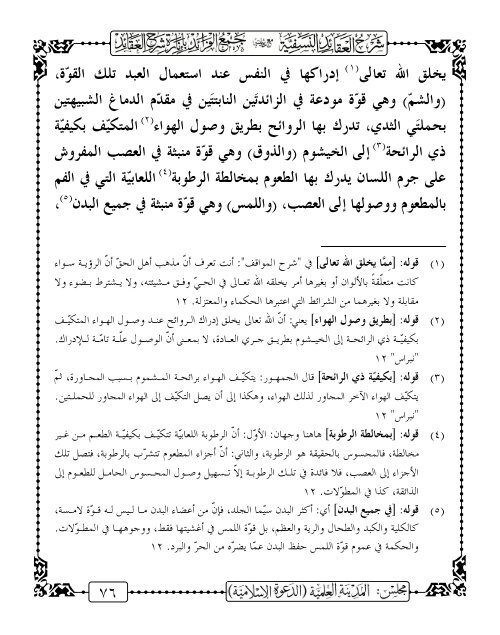 شرح العقائد النسفية مع حاشيته جمع الفرائد بإنارة شرح العقائد
يخلق الله تعالى(١) إدراكها في النفس عند استعمال العبد تلك القوّة،
(والشمّ) وهي قوّة مودعة في الزائدتَين النابتتَين في مقدّم الدماغ الشبيهتين
بحملتَي الثدي، تدرك بها الروائح بطريق وصول الهواء(٢) المتكيّف بكيفيّة
ذي الرائحة(٣) إلى الخيشوم (والذوق) وهي قوّة منبثة في العصب المفروش
على جرم اللسان يدرك بها الطعوم بمخالطة الرطوبة(٤) اللعابيّة التي في الفم
بالمطعوم ووصولها إلى العصب، (واللمس) وهي قوّة منبثة في جميع البدن(٥)،
(١) قوله: [ممّا يخلق الله تعالى] في "شرح المواقف": أنت تعرف أنّ مذهب أهل الحقّ أنّ الرؤية سواء
كانت متعلّقة بالألوان أو بغيرها أمر يخلقه الله تعالى في الحيّ وفق مشيئته، ولا يشترط بضوء ولا
مقابلة ولا بغيرهما من الشرائط التي اعتبرها الحكماء والمعتزلة. ١٢
(٢) قوله: [بطريق وصول الهواء] يعني: أنّ الله تعالى يخلق إدراك الروائح عند وصول الهواء المتكيّف
بكيفيّة ذي الرائحة إلى الخيشوم بطريق جري العادة، لا بمعنى أنّ الوصول علّة تامّة للإدراك.
"نبراس" ١٢
(٣) قوله: [بكيفيّة ذي الرائحة] قال الجمهور: يتكيّف الهواء برائحة المشموم بسبب المجاورة، ثمّ
يتكيّف الهواء الآخر المجاور لذلك الهواء، وهكذا إلى أن يصل التكيّف إلى الهواء المجاور للحملتين.
"نبراس" ١٢
(٤) قوله: [بمخالطة الرطوبة] هاهنا وجهان: الأوّل: أنّ الرطوبة اللعابيّة تتكيّف بكيفيّة الطعم من غير
مخالطة، فالمحسوس بالحقيقة هو الرطوبة، والثاني: أنّ أجزاء المطعوم تتشرّب بالرطوبة، فتصل تلك
الأجزاء إلى العصب، فلا فائدة في تلك الرطوبة إلاّ تسهيل وصول المحسوس الحامل للطعوم إلى
الذائقة، كذا في المطوّلات. ١٢
(٥) قوله: [في جميع البدن] أي: أكثر البدن سيّما الجلد، فإنّ من أعضاء البدن ما ليس له قوّة لامسة،
كالكلية والكبد والطحال والرية والعظم، بل قوّة اللمس في أغشيتها فقط، ووجوهها في المطوّلات.
والحكمة في عموم قوّة اللمس حفظ البدن عمّا يضرّه من الحرّ والبرد. ١٢
مجلس: المدينة العلمية (الدعوة الإسلامية)
٧٦